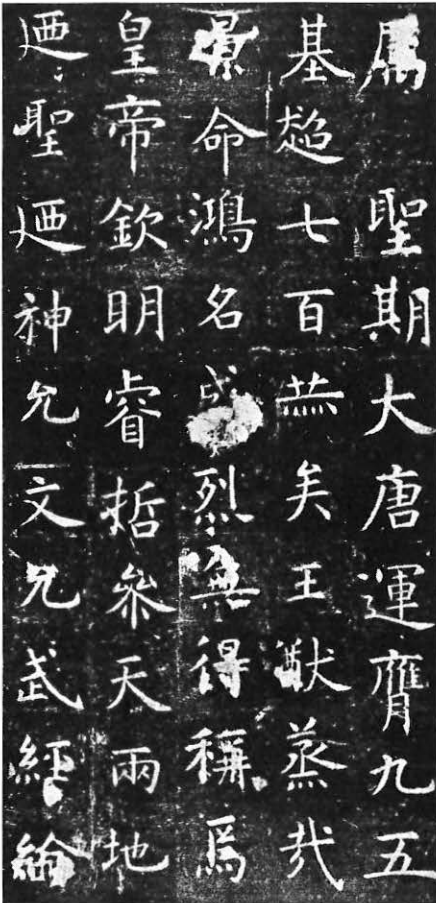 屬 聖期大唐運膺九五
基超七百赫矣王猷蒸哉
景命鴻名盛烈無得稱焉
皇帝欽明睿哲參天兩地
廼聖廼神允文允武經綸